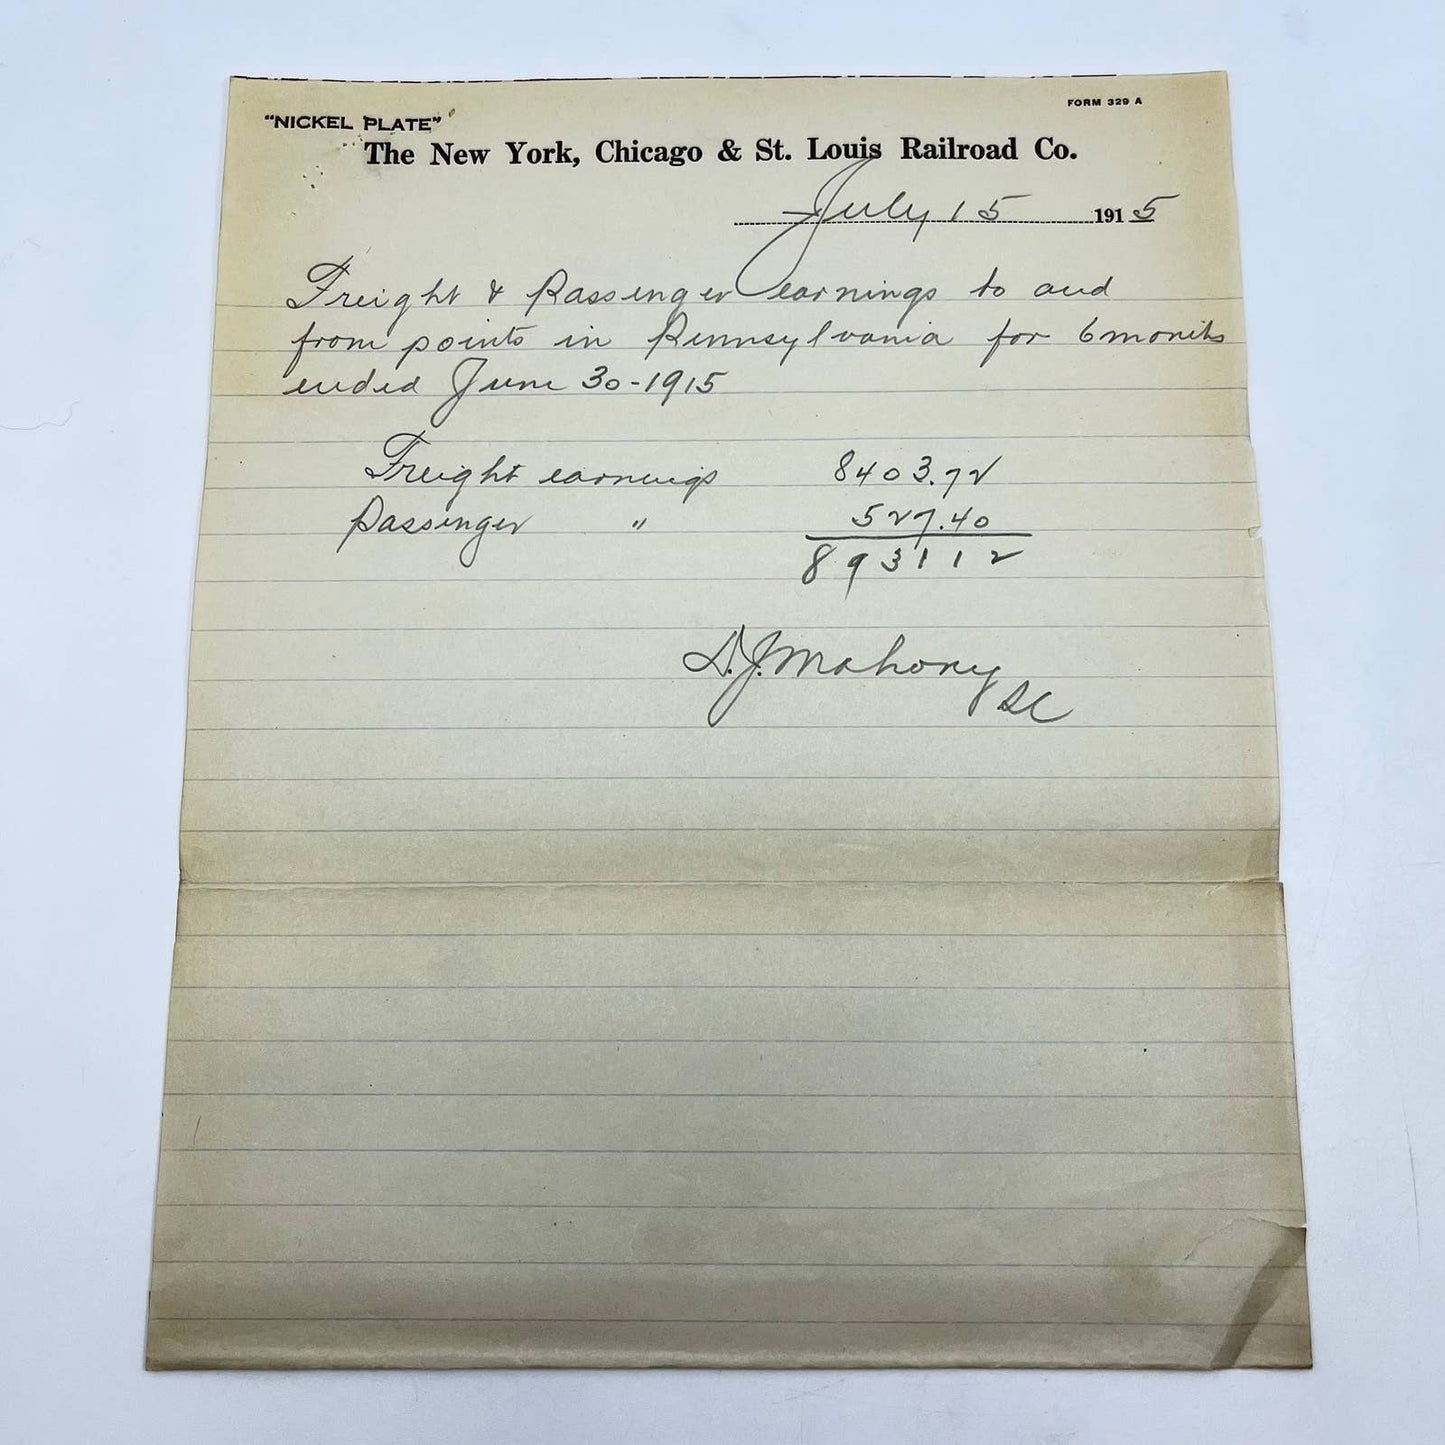 FORM 329 A
"NICKEL PLATE"
The New York, Chicago & St. Louis Railroad Co.
July 15 1915
Freight & Passenger earnings to and
from points in Pennsylvania for 6 months
ended June 30-1915
Freight earnings 8403.72
Passenger " 527.40
893112
D.J. Mahony
SC